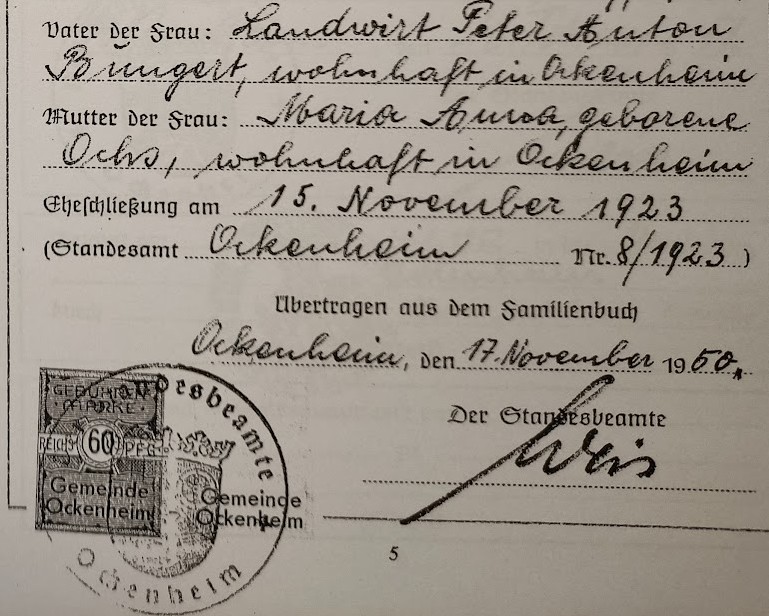 Vater der Frau: Landwirt Peter Anton
Büngert, wohnhaft in Ockenheim
Mutter der Frau: Maria Anna, geborene
Ochs, wohnhaft in Ockenheim
Eheschließung am 15. November 1923
(Standesamt Ockenheim Nr. 8/1923)
Übertragen aus dem Familienbuch
Ockenheim, den 17. November 1950.
Der Standesbeamte
Weis
GEBÜHREN
MARKE
REICHS 60 PFG
Gemeinde
Ockenheim
Gemeinde
Ockenheim
desbeamte
Ockenheim
5